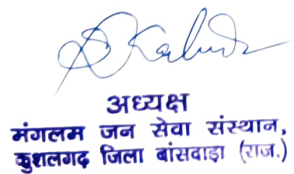 अध्यक्ष
मंगलम जन सेवा संस्थान,
कुशलगढ़ जिला बांसवाड़ा (राज.)